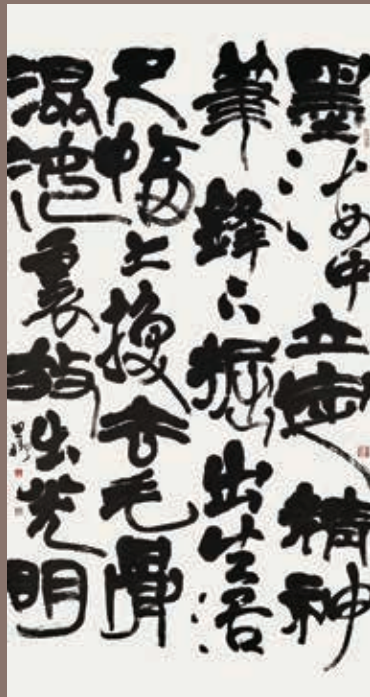 墨海中立定精神
筆鋒下掘出生活
尺幅上換去毛骨
混沌裏放出光明